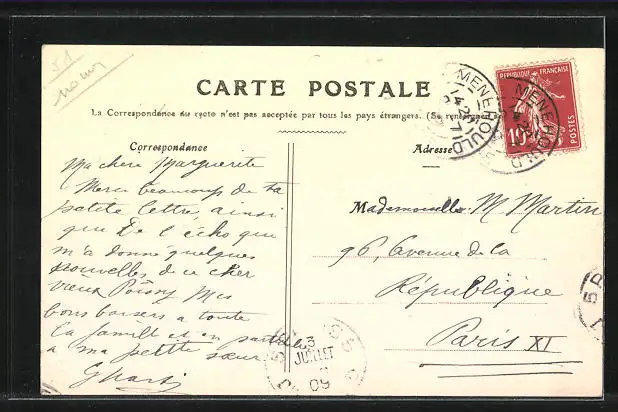 CARTE POSTALE
La Correspondance au recto n'est pas acceptée par tous les pays étrangers. (Se renseigner
Correspondance
Ma chère Marguerite
Merci beaucoup de ta
petite lettre, ainsi
que de l'écho que
m'a donné quelques
nouvelles de ce cher
vieux Poissy Mes
bons baisers a toute
la famille et en particulier
a ma petite sœur
Adresse
Mademoiselle M Martin
96, Avenue de la
République
Paris XI
REPUBLIQUE FRANÇAISE
10
POSTES
MENEHOULD
MENEHOULD
3
JUILLET
09